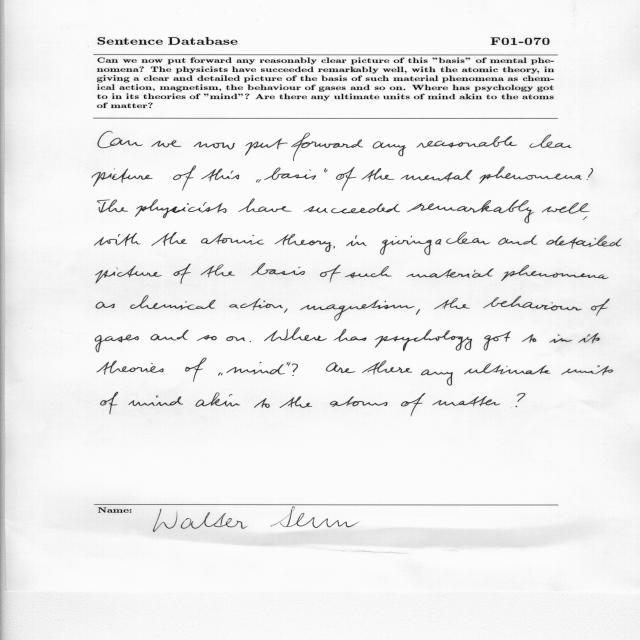 Sentence Database F01-070
Can we now put forward any reasonably clear picture of this "basis" of mental phe-
nomena? The physicists have succeeded remarkably well, with the atomic theory, in
giving a clear and detailed picture of the basis of such material phenomena as chem-
ical action, magnetism, the behaviour of gases and so on. Where has psychology got
to in its theories of "mind"? Are there any ultimate units of mind akin to the atoms
of matter?
Can we now put forward any reasonable clear
picture of this „basis" of the mental phenomena?
The physicists have succeeded remarkably well,
with the atomic theory, in giving a clear and detailed
picture of the basis of such material phenomena
as chemical action, magnetism, the behaviour of
gases and so on. Where has psychology got to in its
theories of „mind"? Are there any ultimate units
of mind akin to the atoms of matter?
Name: Walser